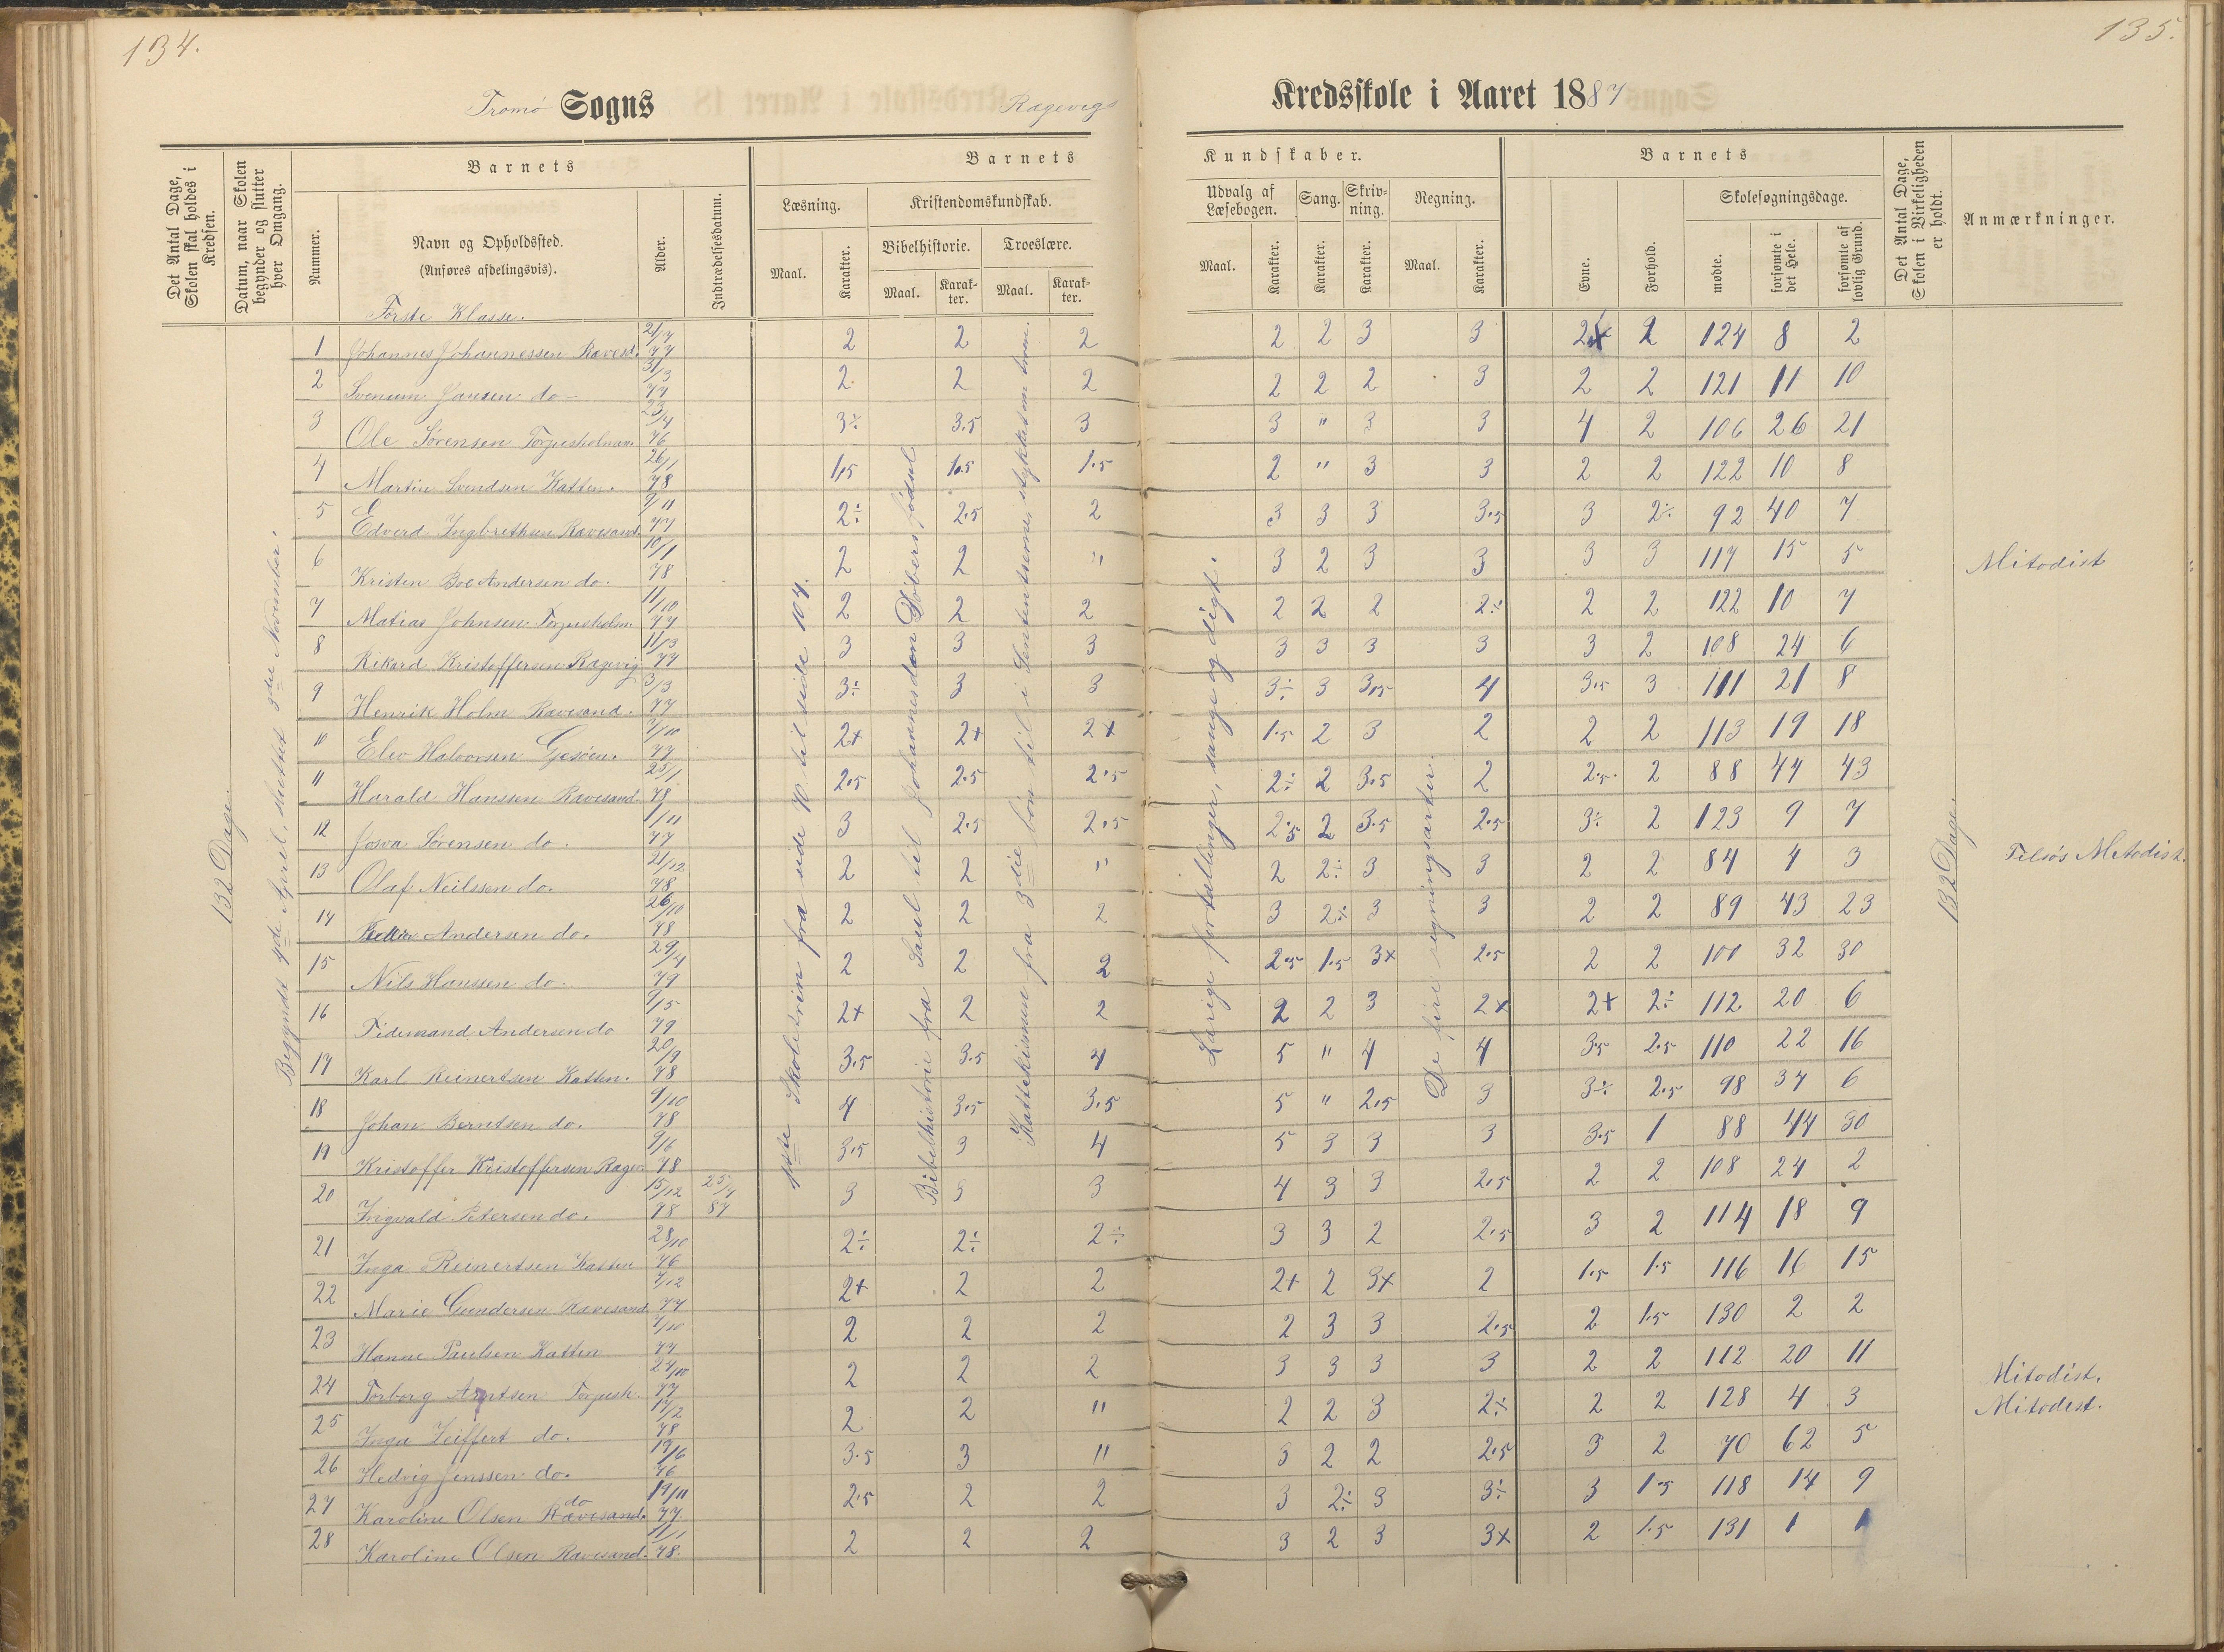 134.
135.
Tromø Sogns Ragevigs Kredsskole i Aaret 1887
Det Antal Dage, Skolen skal holdes i Kredsen.
Datum, naar Skolen begynder og slutter hver Omgang.
Barnets
Nummer.
Navn og Opholdssted.
(Anføres afdelingsvis).
Alder.
Indtrædelsesdatum.
Barnets Kundskaber.
Læsning.
Maal.
Karakter.
Kristendomskundskab.
Bibelhistorie.
Maal.
Karakter.
Troeslære.
Maal.
Karakter.
Udvalg af Læsebogen.
Maal.
Karakter.
Sang.
Karakter.
Skrivning.
Karakter.
Regning.
Maal.
Karakter.
Barnets
Evne.
Forhold.
Skolesøgningsdage.
mødte.
forsømte i det Hele.
forsømte af lovlig Grund.
Det Antal Dage, Skolen i Virkeligheden er holdt.
Anmærkninger.
132 Dage.
Begyndt 4de April, sluttet 3die November.
Første Klasse.
1ste Skoletrin fra side 70 til side 104.
Bibelhistorie fra Saul til Johannes den Døbers fødsel
Kattekismen fra 3die bøn til i Sententserne, stykket om troen.
Lærige fortællinger, sange og digt.
De fire regningsarter.
132 Dage.
1 Johannes Johannessen Ravesd. 21/7 77 2 2 2 2 2 3 3 2x 2 124 8 2
2 Svenum Jansen do 31/3 77 2 2 2 2 2 2 3 2 2 121 11 10
3 Ole Sørensen Torjusholmen 23/4 76 3÷ 3.5 3 3 " 3 3 4 2 106 26 21
4 Martin Svendsen Katten. 26/1 78 1,5 1.5 1.5 2 " 3 3 2 2 122 10 8
5 Edverd Ingbrethsen Ravesand. 9/11 77 2÷ 2.5 2 3 3 3 3.5 3 2÷ 92 40 7
6 Kristen Boe Andersen do. 10/1 78 2 2 " 3 2 3 3 3 3 117 15 5 Mitodist
7 Matias Johnsen Torjusholm 11/10 77 2 2 2 2 2 2 2÷ 2 2 122 10 7
8 Rikard Kristoffersen Ragevig 11/3 77 3 3 3 3 3 3 3 3 2 108 24 6
9 Henrik Holm Ravesand. 3/3 77 3÷ 3 3 3÷ 3 3,5 4 3.5 3 111 21 8
10 Elev Halvorsen Gjesøen. 7/10 77 2+ 2+ 2+ 1.5 2 3 2 2 2 113 19 18
11 Harald Hanssen Ravesand. 25/1 78 2.5 2.5 2.5 2÷ 2 3.5 2 2.5. 2 88 44 43
12 Josva Sørensen do. 1/11 77 3 2.5 2.5 2.5 2 3.5 2.5 3÷ 2 123 9 7
13 Olaf Neilssen do. 21/12 78 2 2 " 2 2÷ 3 3 2 2 84 4 3 Tilsøs Metodist.
14 Andersen do. 26/10 78 2 2 2 3 2÷ 3 3 2 2 89 43 23
15 Nils Hanssen do. 29/4 79 2 2 2 2.5 1.5 3+ 2.5 2 2 100 32 30
16 Tidemand Andersen do 9/5 79 2+ 2 2 2 2 3 2+ 2+ 2÷ 112 20 6
17 Karl Reinertsen Katten. 20/9 78 3.5 3.5 4 5 " 4 4 3.5 2.5 110 22 16
18 Johan Berntsen do. 9/10 78 4 3.5 3.5 5 " 2.5 3 3÷ 2.5 98 34 6
19 Kristoffer Kristoffersen Ragev 9/6 78 3.5 3 4 5 3 3 3 3.5 1 88 44 30
20 Ingvald Petersen do. 15/12 78 25/1 87 3 3 3 4 3 3 2.5 2 2 108 24 2
21 Inga Reinertsen Katten 28/10 76 2÷ 2÷ 2÷ 3 3 2 2.5 3 2 114 18 9
22 Marie Gundersen Ravesand 7/12 77 2+ 2 2 2+ 2 3+ 2 1.5 1.5 116 16 15
23 Hanne Paulsen Katten 7/10 77 2 2 2 2 3 3 2.5 2 1.5 130 2 2
24 Torborg Arntsen Torjush. 24/10 77 2 2 2 3 3 3 3 2 2 112 20 11
25 Inga Zeiffert do. 17/2 78 2 2 " 2 2 3 2÷ 2 2 128 4 3 Mitodist.
26 Hedvig Jenssen do. 19/6 76 3.5 3 " 3 2 2 2.5 3 2 70 62 5 Mitodist.
27 Karoline Olsen Ravesand. do 19/11 77. 2.5 2 2 3 2÷ 3 3÷ 3 1.5 118 14 9
28 Karoline Olsen Ravesand. 11/1 78. 2 2 2 3 2 3 3+ 2 1.5 131 1 1